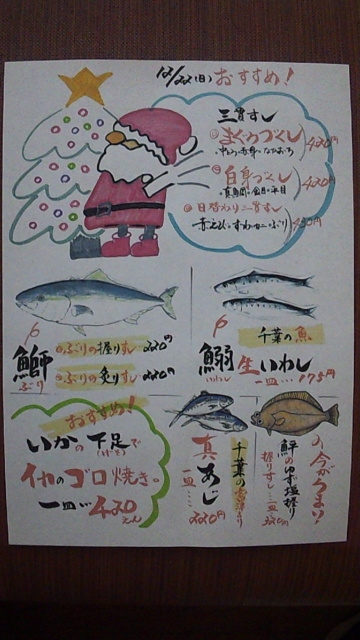 12/22(日)おすすめ!
三貫すし
まぐろづくし 420円
中とろ・赤身・ねぎとろ
白身づくし 420円
真鯛・金目・平目
日替わり三貫すし
赤えび・すわいかに・ぶり 450円
鰤
ぶり
ぶりの握りすし…220円
ぶりの炙りすし…220円
千葉の魚
鰯
いわし
生いわし
一皿…175円
おすすめ!
いかの下足で
イカのゴロ焼き。
一皿…420えん
千葉の
真あじ
一皿…220円
今がうまい!
鮃のゆず塩握り
握りすし…一皿…320円